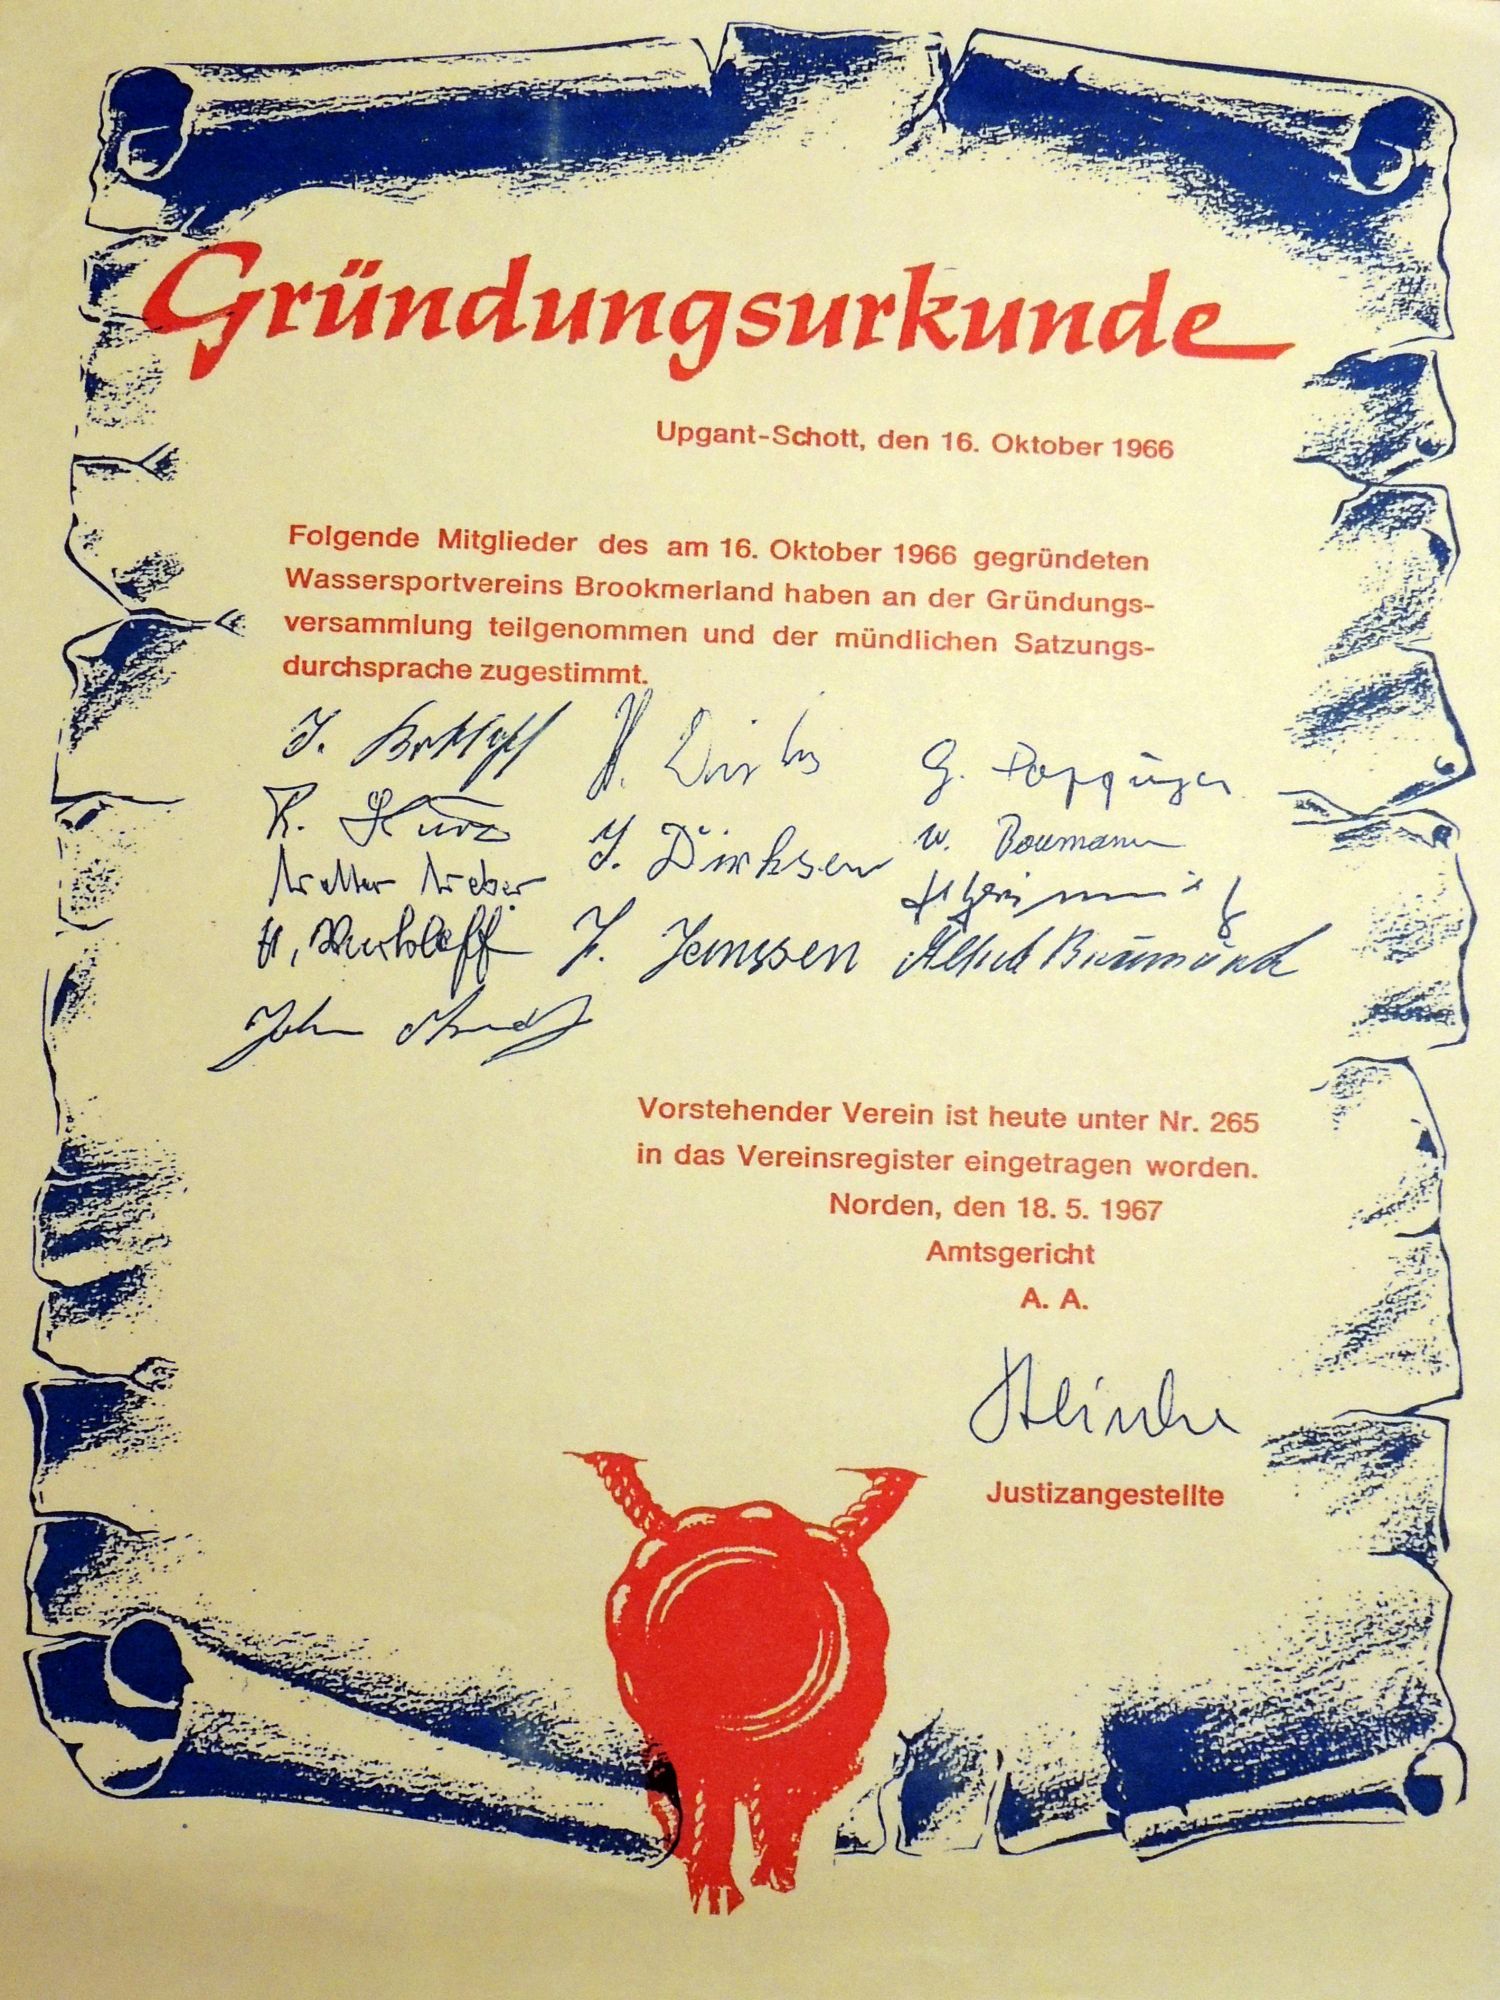 Gründungsurkunde
Upgant-Schott, den 16. Oktober 1966
Folgende Mitglieder des am 16. Oktober 1966 gegründeten
Wassersportvereins Brookmerland haben an der Gründungs-
versammlung teilgenommen und der mündlichen Satzungs-
durchsprache zugestimmt.
J. H. G. Poppinga
R. Kurz J. Dirksen W. Baumann
Walter Weber
H. J. Janssen
John
Vorstehender Verein ist heute unter Nr. 265
in das Vereinsregister eingetragen worden.
Norden, den 18. 5. 1967
Amtsgericht
A. A.
Justizangestellte